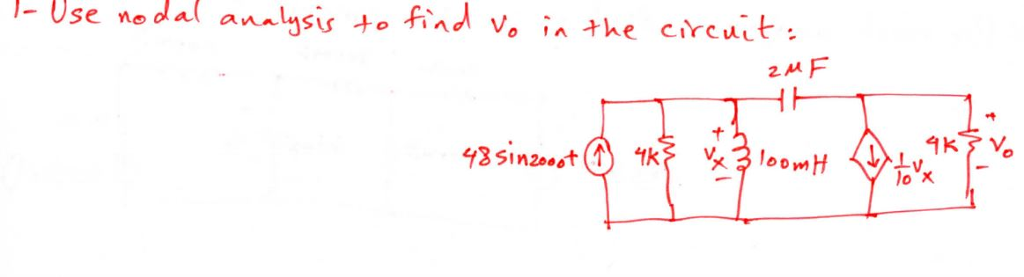 1- Use nodal analysis to find Vo in the circuit:
2MF
48 sin2000t
4K
+
Vx
-
100mH
1/10 Vx
4K
+
Vo
-